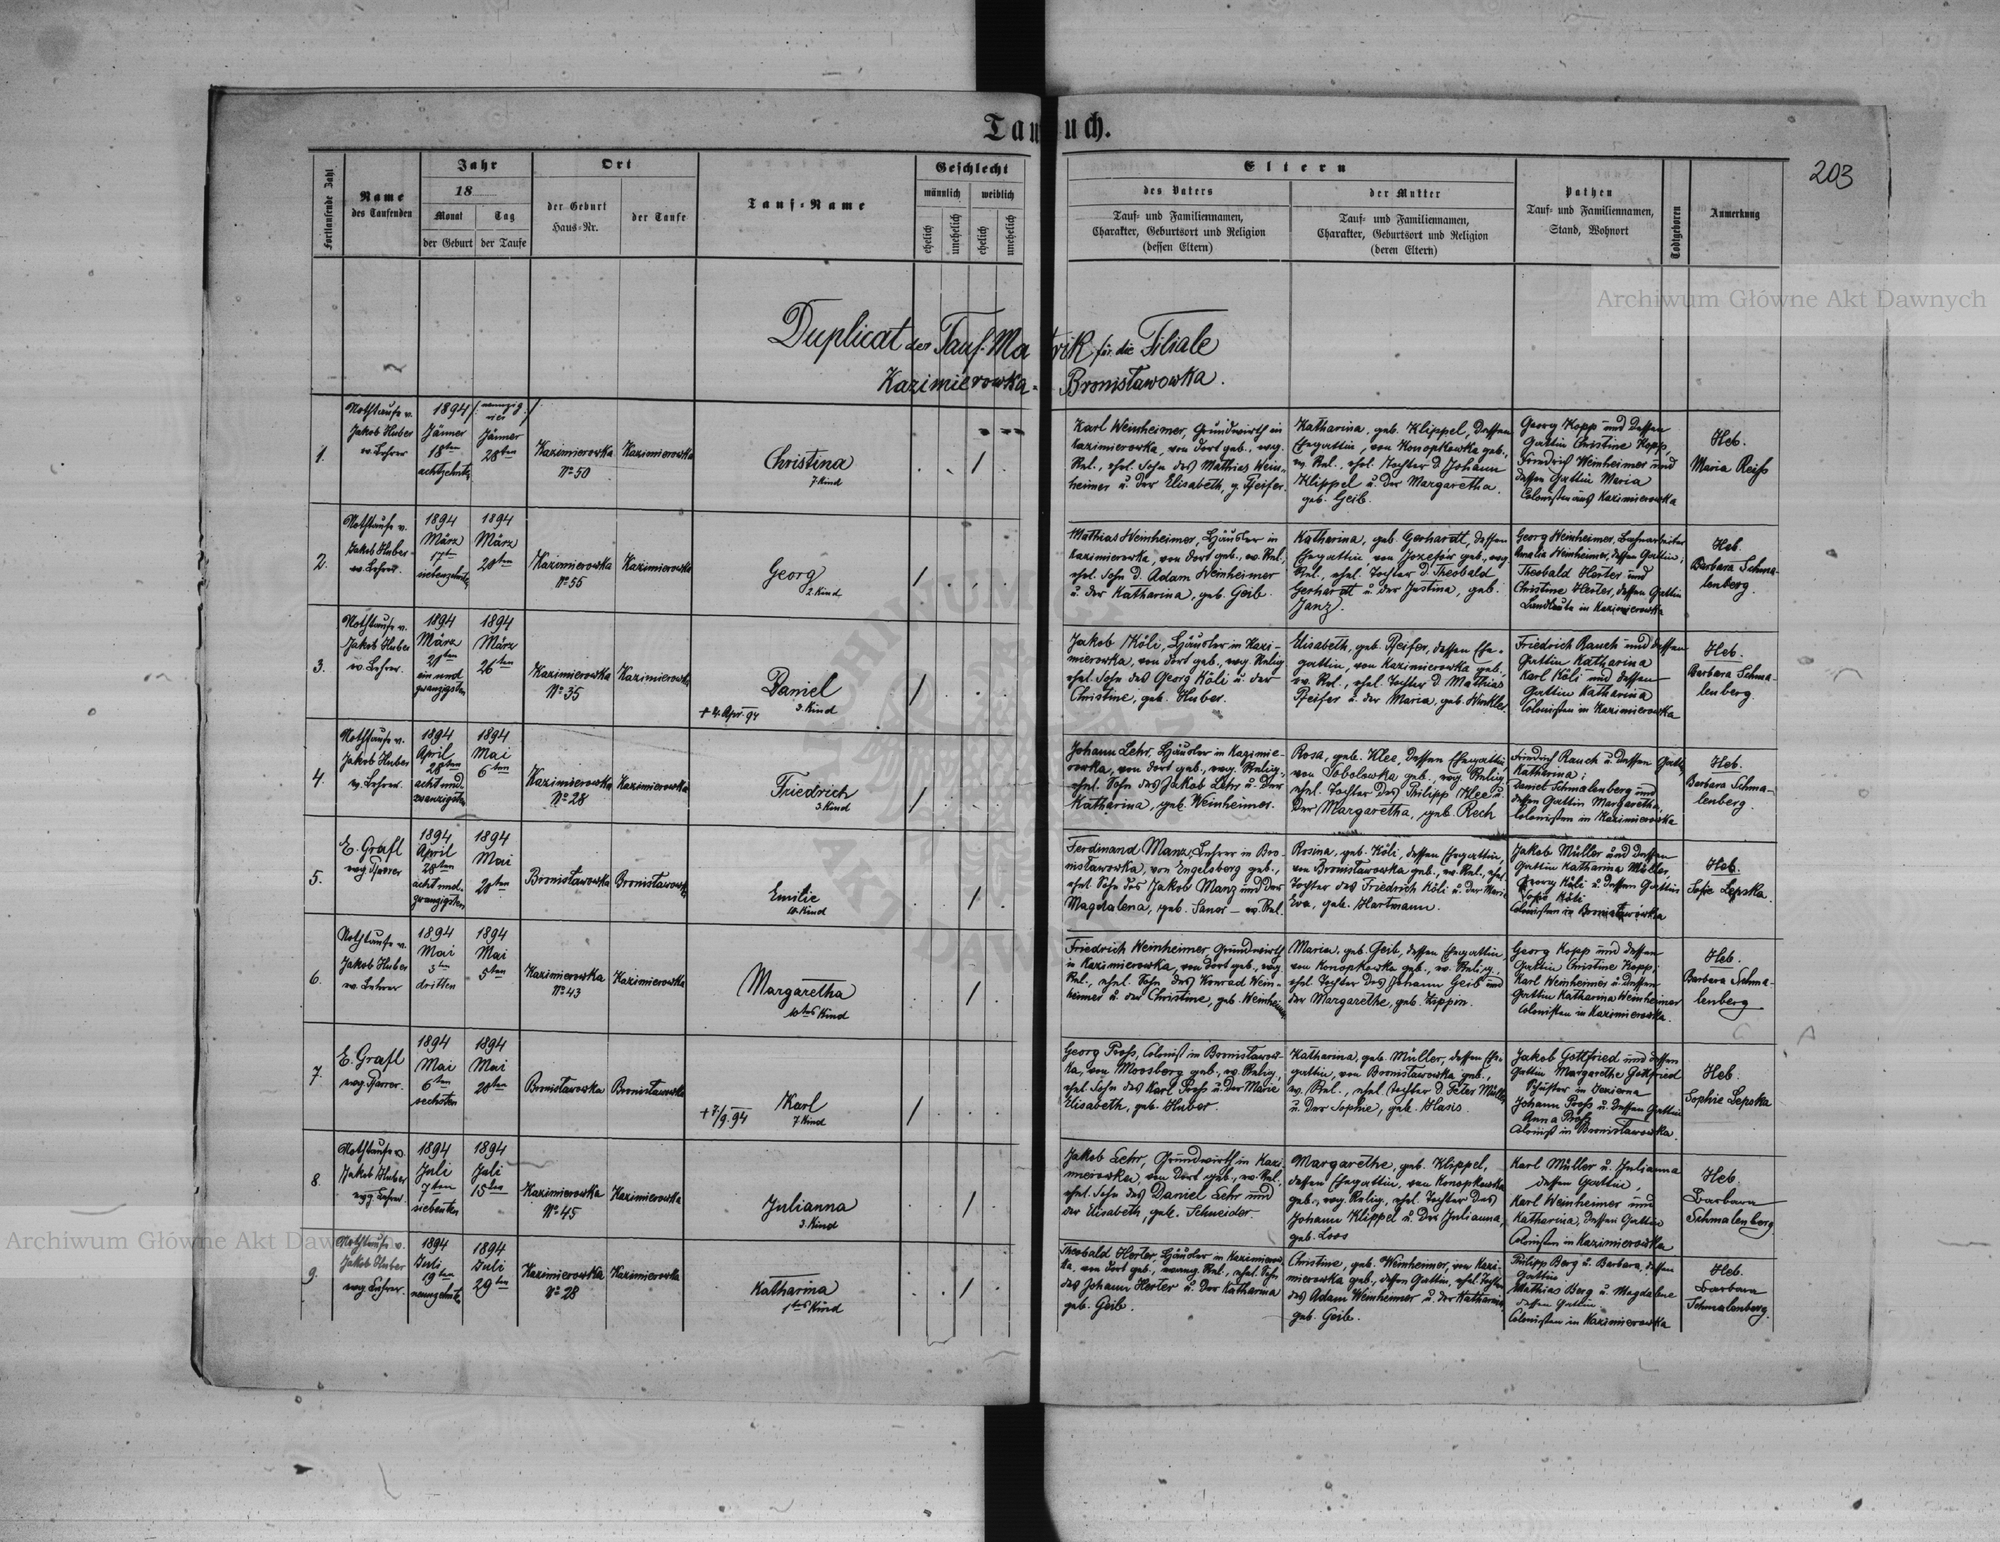 Taufbuch.
203
Fortlaufende Zahl
Name
des Taufenden
Jahr
18
Monat
Tag
der Geburt
der Taufe
Ort
der Geburt
Haus-Nr.
der Taufe
Tauf-Name
Geschlecht
männlich
weiblich
ehelich
unehelich
ehelich
unehelich
Eltern
des Vaters
Tauf- und Familiennamen,
Charakter, Geburtsort und Religion
(dessen Eltern)
der Mutter
Tauf- und Familiennamen,
Charakter, Geburtsort und Religion
(deren Eltern)
Pathen
Tauf- und Familiennamen,
Stand, Wohnort
Todtgeboren
Anmerkung
Archiwum Główne Akt Dawnych
Duplicat der Tauf-Matrik für die Filiale
Kazimierowka-Bronisławowka.
1.
Nothtaufe v.
Jakob Huber
ev. Lehrer
1894
Jänner
18ten
achtzehnte
Jänner
28ten
Kazimierowka
No 50
Kazimierowka
Christina
7 Kind
Karl Weinheimer, Grundwirth in
Kazimierowka, von dort geb., evg.
Rel., ehel. Sohn des Mathias Wein-
heimer u. der Elisabeth, g. Pfeifer.
Katharina, geb. Klippel, dessen
Ehegattin, von Konopkowka geb.,
ev. Rel., ehel. Tochter d. Johann
Klippel u. der Margaretha,
geb. Geib.
Georg Kopp und dessen
Gattin Christine Kopp,
Friedrich Weinheimer und
dessen Gattin Maria
Colonisten aus Kazimierowka
Heb.
Maria Reiß
2.
Nothtaufe v.
Jakob Huber
ev. Lehrer.
1894
März
17t
siebenzehnte
1894
März
28ten
Kazimierowka
No 55
Kazimierowka
Georg
2. Kind
Mathias Weinheimer, Häusler in
Kazimierowka, von dort geb., ev. Rel.,
ehel. Sohn d. Adam Weinheimer
u. der Katharina, geb. Geib.
Katharina, geb. Gerhardt, dessen
Ehegattin, von Jozefów geb., evg.
Rel., ehel. Tochter d. Theobald
Gerhardt u. der Justina, geb.
Janz.
Georg Weinheimer, Bahnarbeiter
Amalia Weinheimer, dessen Gattin;
Theobald Herter und
Christine Herter, dessen Gattin
Landleute in Kazimierowka
Heb.
Barbara Schma-
lenberg.
3.
Nothtaufe v.
Jakob Huber
ev. Lehrer.
1894
März
21ten
ein und
zwanzigsten
1894
März
26ten
Kazimierowka
No 35
Kazimierowka
Daniel
3. Kind
+ 4. Apr. 94
Jakob Köli, Häusler in Kazi-
mierowka, von dort geb., evg. Relig.
ehel. Sohn des Georg Köli u. der
Christine, geb. Huber.
Elisabeth, geb. Pfeifer, dessen Ehe-
gattin, von Kazimierowka geb.,
ev. Rel., ehel. Tochter d. Mathias
Pfeifer u. der Maria, geb. Winkler.
Friedrich Rauch und dessen
Gattin Katharina
Karl Köli und dessen
Gattin Katharina
Colonisten in Kazimierowka
Heb.
Barbara Schma-
lenberg.
4.
Nothtaufe v.
Jakob Huber
ev. Lehrer.
1894
April
28ten
acht und
zwanzigsten
1894
Mai
6ten
Kazimierowka
No 28
Kazimierowka
Friedrich
3 Kind
Johann Lehr, Häusler in Kazimie-
rowka, von dort geb., evg. Relig.,
ehel. Sohn des Jakob Lehr u. der
Katharina, geb. Weinheimer.
Rosa, geb. Klee, dessen Ehegattin
von Sobolowka geb., evg. Relig.,
ehel. Tochter des Philipp Klee u.
der Margaretha, geb. Rech
Friedrich Rauch u. dessen Gattin
Katharina;
Daniel Schmalenberg und
dessen Gattin Margaretha,
Colonisten in Kazimierowka
Heb.
Barbara Schma-
lenberg.
5.
E. Grafl
evg Pfarrer
1894
April
28ten
acht und
zwanzigsten
1894
Mai
20ten
Bronisławowka
Bronisławowka
Emilie
10. Kind
Ferdinand Manz, Lehrer in Bro-
nisławowka, von Engelsberg geb.,
ehel. Sohn des Jakob Manz und der
Magdalena, geb. Sanor – ev. Rel.
Rosina, geb. Köli, dessen Ehegattin,
von Bronisławowka geb., ev. Rel., ehel.
Tochter des Friedrich Köli u. der Maria
Eva, geb. Hartmann.
Jakob Müller und dessen
Gattin Katharina Müller,
Georg Köli u. dessen Gattin
Sofie Köli
Colonisten in Bronisławowka
Heb.
Sofie Lepska.
6.
Nothtaufe v.
Jakob Huber
ev. Lehrer
1894
Mai
3ten
dritten
1894
Mai
5ten
Kazimierowka
No 43
Kazimierowka
Margaretha
10tes Kind
Friedrich Weinheimer, Grundwirth
in Kazimierowka, von dort geb., evg.
Rel., ehel. Sohn des Konrad Wein-
heimer u. der Christine, geb. Weinheimer
Maria, geb. Geib, dessen Ehegattin,
von Konopkowka geb., ev. Relig.,
ehel. Tochter des Johann Geib und
der Margarethe, geb. Zippin.
Georg Kopp und dessen
Gattin Christine Kopp;
Karl Weinheimer u. dessen
Gattin Katharina Weinheimer
Colonisten in Kazimierowka.
Heb.
Barbara Schma-
lenberg
7.
E. Grafl
evg. Pfarrer.
1894
Mai
6ten
sechsten
1894
Mai
20ten
Bronisławowka
Bronisławowka
Karl
7 Kind
+ 7/9. 94
Georg Proß, Colonist in Bronisławow-
ka, von Moosberg geb., ev. Relig.,
ehel. Sohn des Karl Proß u. der Marie
Elisabeth, geb. Huber.
Katharina, geb. Müller, dessen Ehe-
gattin, von Bronisławowka geb.,
ev. Rel., ehel. Tochter d. Peter Müller
u. der Sophie, geb. Hasis.
Jakob Gottfried und dessen
Gattin Margarethe Gottfried
Johann Proß u. dessen Gattin
Anna Proß
Colonist in Bronisławowka.
Heb.
Sophie Lepska
8.
Nothtaufe v.
Jakob Huber
evg Lehrer.
1894
Juli
7ten
siebenten
1894
Juli
15ten
Kazimierowka
No 45
Kazimierowka
Julianna
3. Kind
Jakob Lehr, Grundwirth in Kazi-
mierowka, von dort geb., ev. Rel.,
ehel. Sohn des Daniel Lehr und
der Elisabeth, geb. Schneider
Margarethe, geb. Klippel,
dessen Ehegattin, von Konopkowka
geb., evg. Relig., ehel. Tochter des
Johann Klippel u. der Julianna,
geb. Loos
Karl Müller u. Julianna
dessen Gattin,
Karl Weinheimer und
Katharina, dessen Gattin
Colonisten in Kazimierowka
Heb.
Barbara
Schmalenberg.
9.
Nothtaufe v.
Jakob Huber
evg Lehrer.
1894
Juli
19ten
neunzehnte
1894
Juli
29ten
Kazimierowka
No 28
Kazimierowka
Katharina
1tes Kind
Theobald Herter, Häusler in Kazimierow-
ka, von dort geb., evang. Rel., ehel. Sohn
des Johann Herter u. der Katharina
geb. Geib.
Christine, geb. Weinheimer, von Kazi-
mierowka geb., dessen Gattin, ehel. Tochter
des Adam Weinheimer u. der Katharina
geb. Geib.
Philipp Berg u. Barbara, dessen
Gattin
Mathias Berg u. Magdalene
dessen Gattin
Colonisten in Kazimierowka
Heb.
Barbara
Schmalenberg.
Archiwum Główne Akt Dawnych